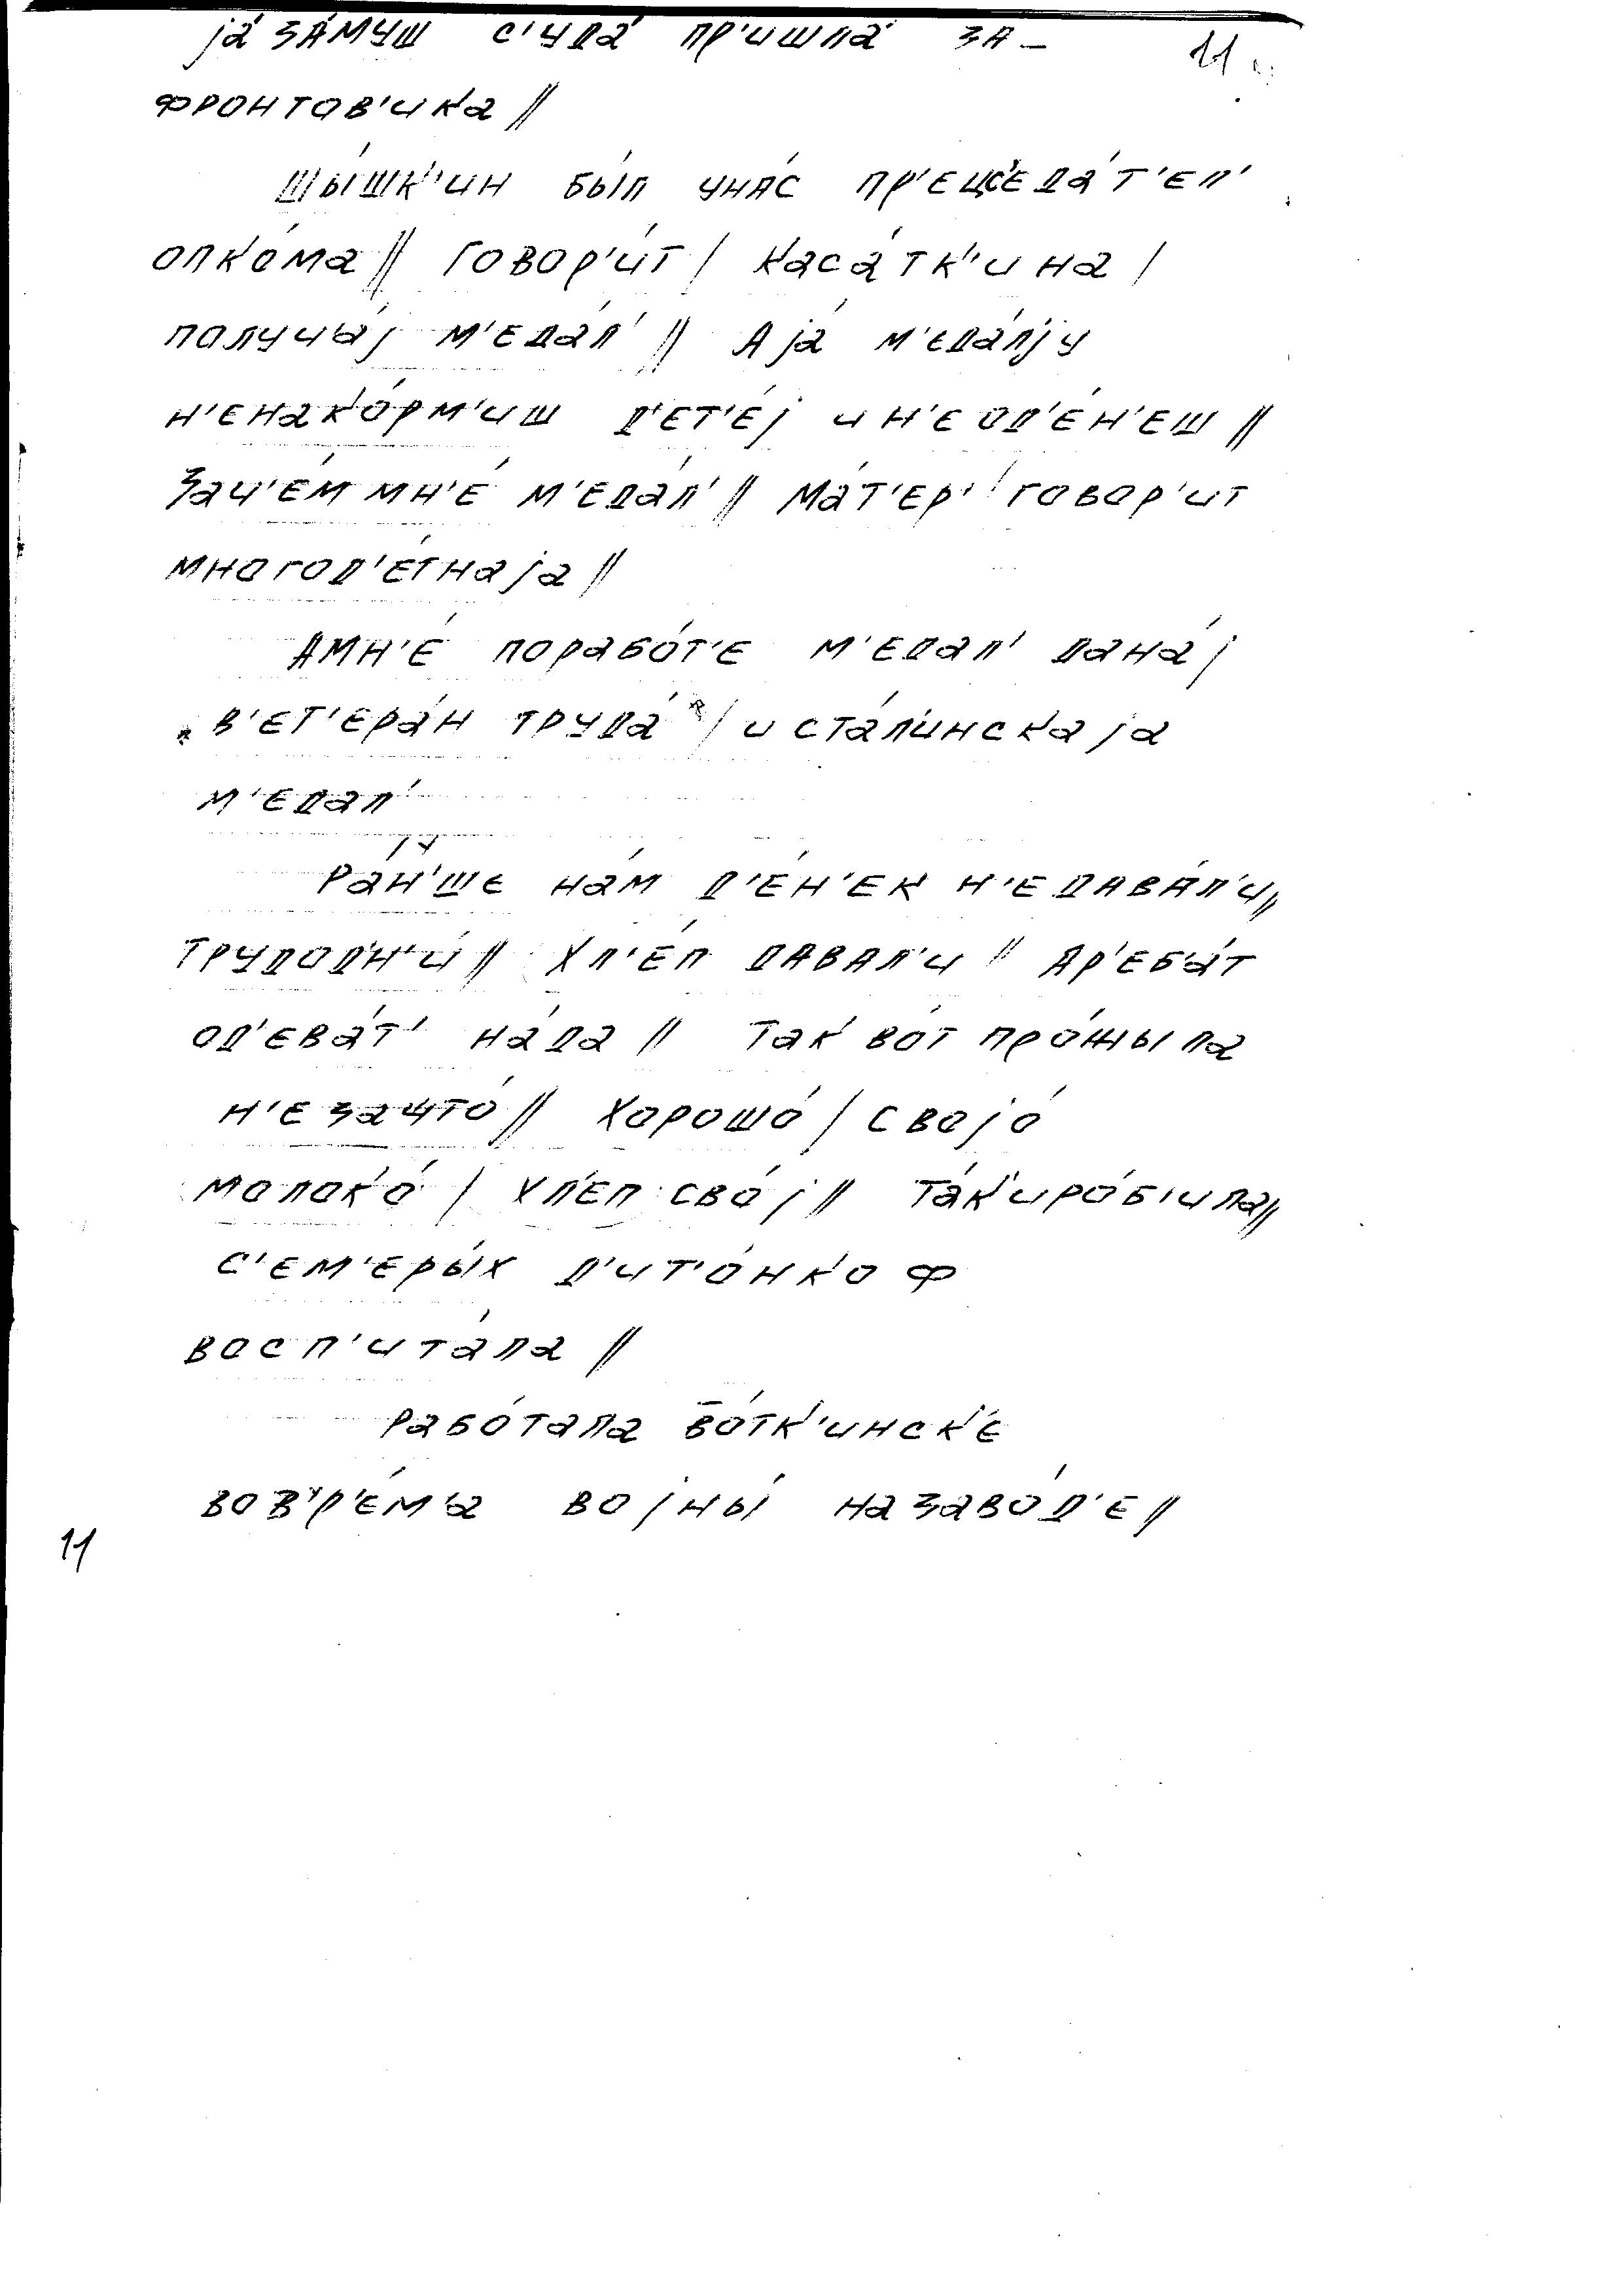 jа́ за́муш с'уда́ пр'ишла́ за–
11
фронтов'ика //
Шы́шк'ин бы́л уна́с пр'ецс'еда́т'ел'
опко́ма // говор'и́т / Каса́тк'ина /
получа́j м'еда́л' // А jа́ м'еда́л'jу
н'енако́рм'иш д'ет'е́j и н'е од'е́н'еш //
Зач'е́м мн'е́ м'еда́л' // Ма́т'ер' / говор'ит
многод'е́тнаjа //
Амн'е́ порабо́т'е м'едал' дана́ /
"в'ет'ера́н труда́" / и ста́л'инскаjа
м'еда́л'
Ра́н'ше на́м д'е́н'ек н'едава́л'и //
трудодн'и́ // Хл'е́п давал'и // Ар'еб'а́т
од'ева́т' на́да // Так во́т про́жыла
н'езашто́ // Хорошо́ / своjо́
молоко́ / хл'е́п сво́j // Та́к иро́б'ила //
с'ем'еры́х д'ит'о́нкоф
восп'ита́ла //
Рабо́тала в̄о́тк'инск'е
вовр'е́м'а воjны́ назаво́д'е //
11